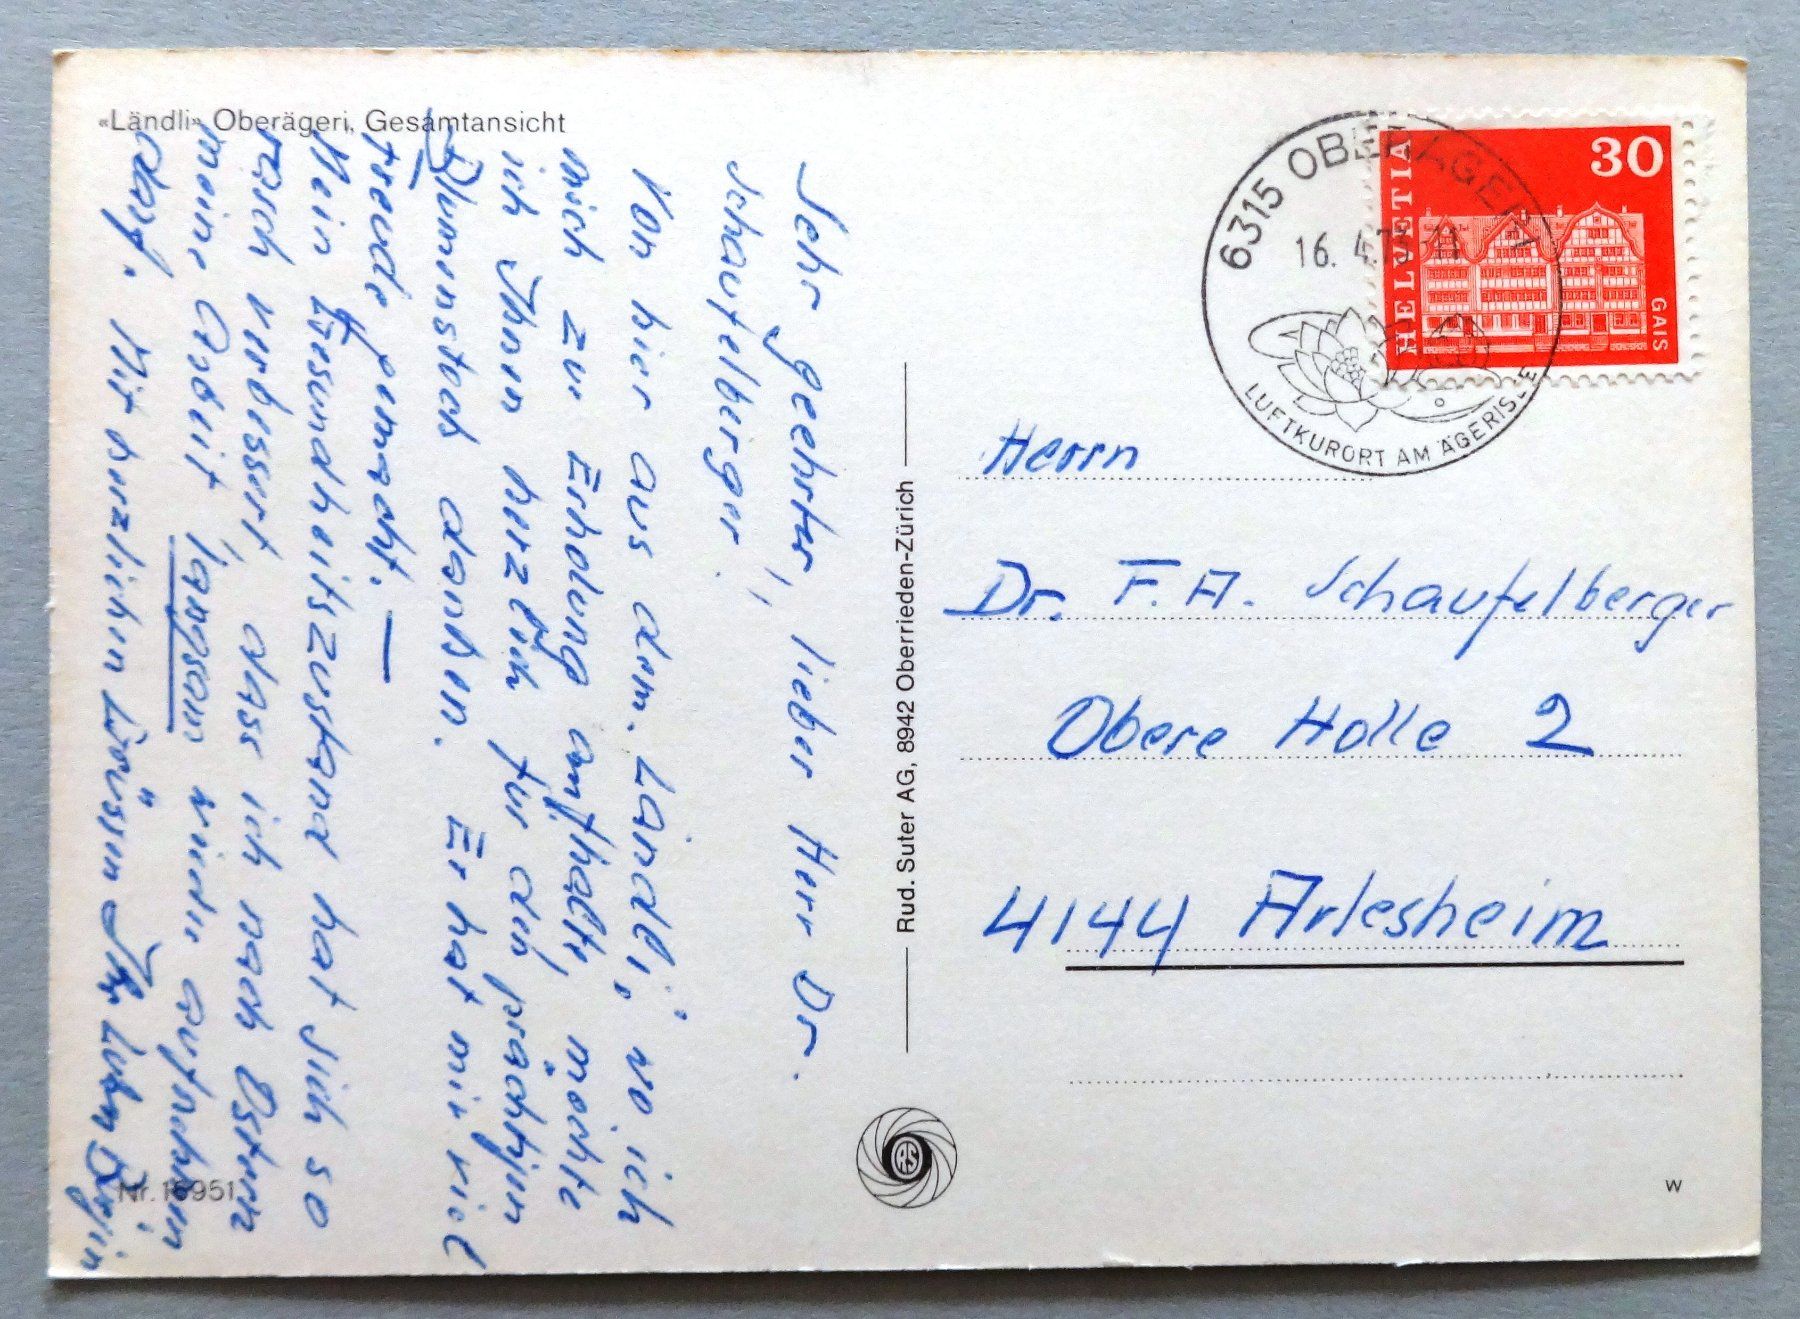 «Ländli» Oberägeri, Gesamtansicht
Sehr geehrter, lieber Herr Dr.
Schaufelberger!
Von hier aus dem "Ländli", wo ich
mich zur Erholung aufhalte, möchte
ich Ihnen herzlich für den prächtigen
Blumenstock danken. Er hat mir viel
Freude gemacht. —
Mein Gesundheitszustand hat sich so
rasch verbessert, dass ich nach Ostern
meine Arbeit langsam wieder aufnehmen
darf. Mit herzlichen Grüssen Ihr
Nr. 16951
Rud. Suter AG, 8942 Oberrieden-Zürich
6315 OBERÄGERI
16. 4.75-11
LUFTKURORT AM ÄGERISEE
HELVETIA
30
GAIS
Herrn
Dr. F. A. Schaufelberger
Obere Holle 2
4144 Arlesheim
W